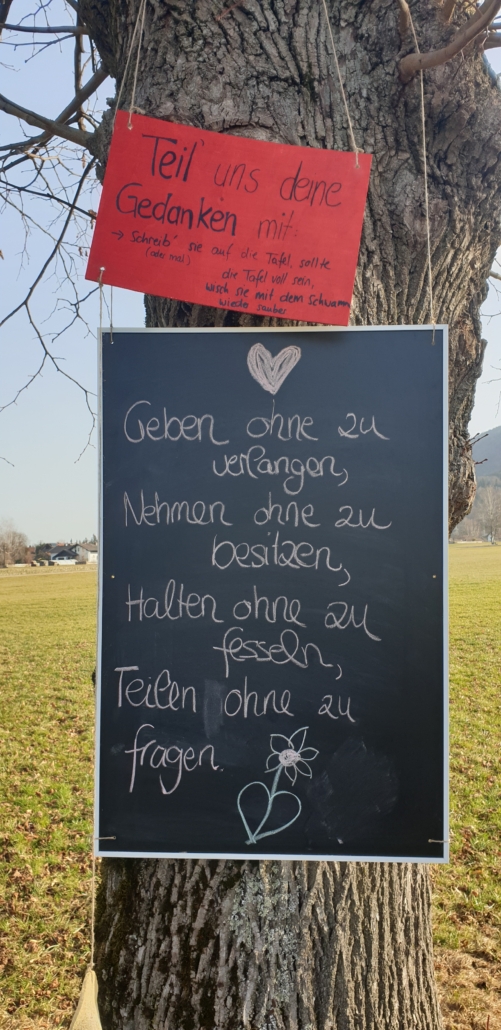 Teil' uns deine
Gedanken mit:
→ Schreib' sie auf die Tafel, sollte
(oder mal.)
die Tafel voll sein,
wisch sie mit dem Schwamm
wieder sauber
Geben ohne zu
verlangen,
Nehmen ohne zu
besitzen,
Halten ohne zu
fesseln,
Teilen ohne zu
fragen.